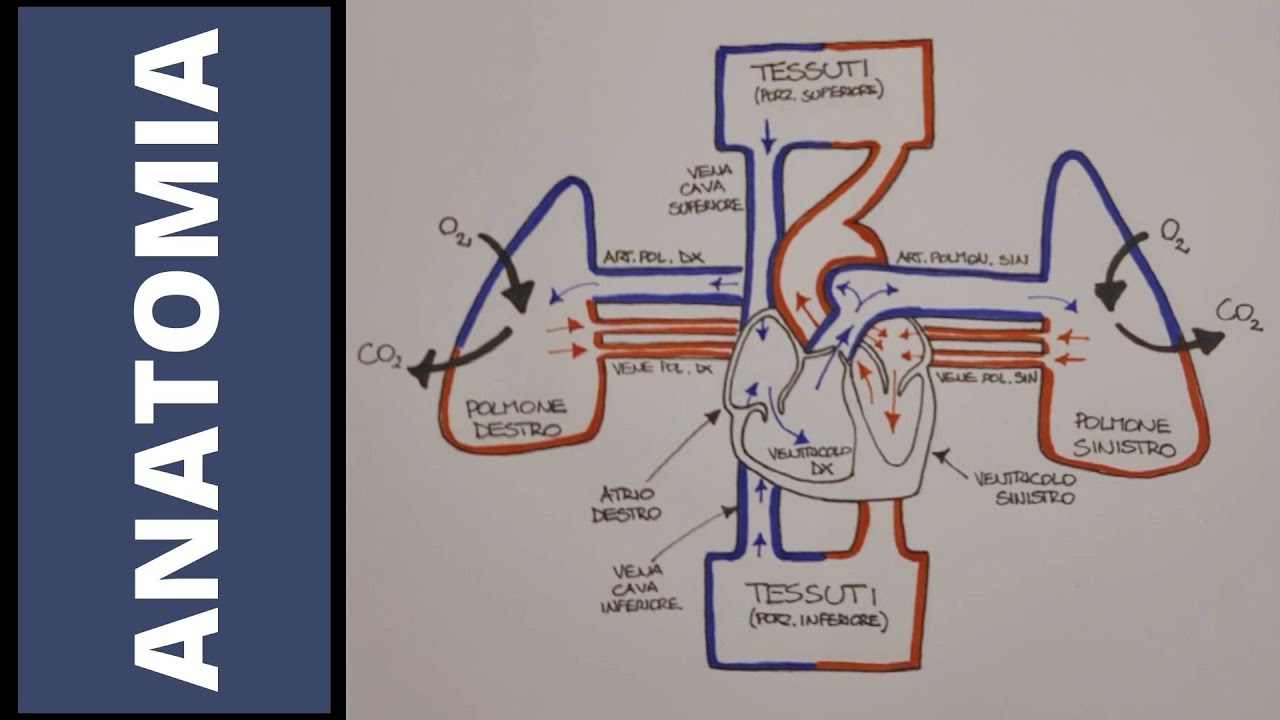 ANATOMIA
TESSUTI
(PORZ. SUPERIORE)
VENA
CAVA
SUPERIORE
O2
ART. POL. DX
ART. POLMON. SIN
O2
CO2
CO2
VENE POL. DX
VENE POL. SIN
POLMONE
DESTRO
POLMONE
SINISTRO
VENTRICOLO
DX
ATRIO
DESTRO
VENTRICOLO
SINISTRO
VENA
CAVA
INFERIORE
TESSUTI
(PORZ. INFERIORE)